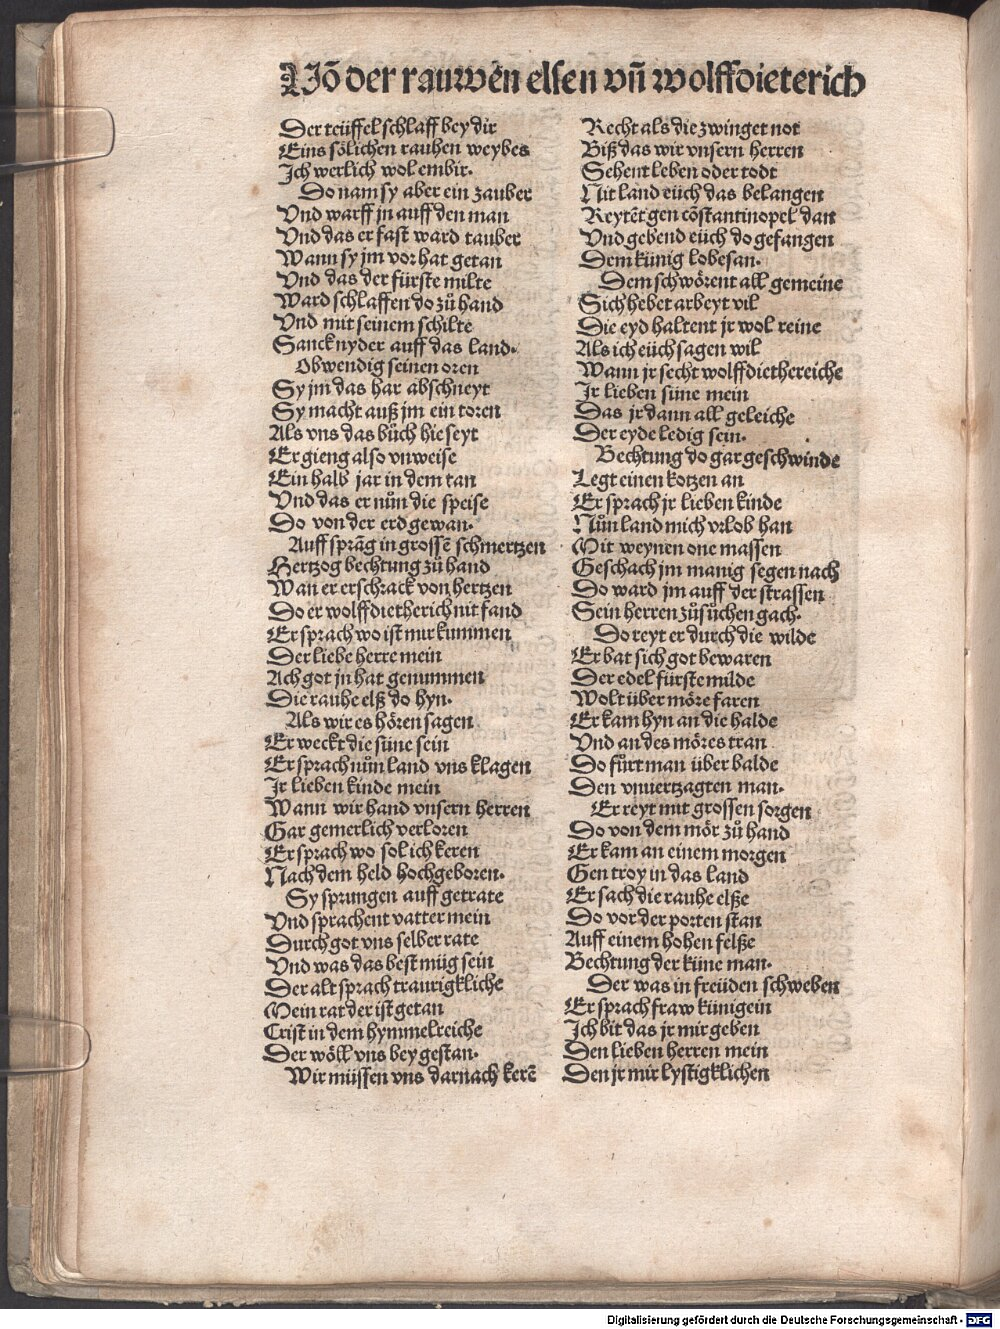 Võ der rauwen elsen vñ wolffdieterich
Der teüffel schlaff bey dir
Eins sölichen rauhen weybes
Jch werlich wol embir.
Do nam sy aber ein zauber
Vnd warff jn auff den man
Vnd das er fast ward tauber
Wann sy jm vor hat getan
Vnd das der fürste milte
Ward schlaffen do zů hand
Vnd mit seinem schilte
Sanck nyder auff das land.
Obwendig seinen oren
Sy jm das har abschneyt
Sy macht auß jm ein toren
Als vns das bůch hie seyt
Er gieng also vnweise
Ein halb jar in dem tan
Vnd das er nůn die speise
Do von der erd gewan.
Auff sprãg in grossẽ schmertzen
Hertzog bechtung zů hand
Wan er erschrack von hertzen
Do er wolffdietherich nit fand
Er sprach wo ist mir kummen
Der liebe herre mein
Ach got jn hat genummen
Die rauhe elß do hyn.
Als wir es hören sagen
Er weckt die süne sein
Er sprach nůn land vns klagen
Jr lieben kinde mein
Wann wir hand vnsern herren
Gar gemerlich verloren
Er sprach wo sol ich keren
Nach dem held hochgeboren.
Sy sprungen auff getrate
Vnd sprachent vatter mein
Durch got vns selber rate
Vnd was das best müg sein
Der alt sprach traurigkliche
Mein rat der ist getan
Crist in dem hymmelreiche
Der wöll vns bey gestan.
Wir müssen vns darnach kerẽ
Recht als die zwinget not
Biß das wir vnsern herren
Sehent leben oder todt
Nit land eüch das belangen
Reytẽt gen cõstantinopel dan
Vnd gebend eüch do gefangen
Dem künig lobesan.
Dem schwörent all gemeine
Sich hebet arbeyt vil
Die eyd haltent jr wol reine
Als ich eüch sagen wil
Wann jr secht wolffdiethereiche
Jr lieben süne mein
Das jr dann all geleiche
Der eyde ledig sein.
Bechtung do gar geschwinde
Legt einen kotzen an
Er sprach jr lieben kinde
Nůn land mich vrlob han
Mit weynen one massen
Geschach jm manig segen nach
Do ward jm auff der strassen
Sein herren zůsůchen gach.
Do reyt er durch die wilde
Er bat sich got bewaren
Der edel fürste milde
Wolt über möre faren
Er kam hyn an die halde
Vnd an des möres tran
Do fürt man über balde
Den vnuertzagten man.
Er reyt mit grossen sorgen
Do von dem mör zů hand
Er kam an einem morgen
Gen troy in das land
Er sach die rauhe elße
Do vor der porten stan
Auff einem hohen felße
Bechtung der küne man.
Der was in freüden schweben
Er sprach fraw künigein
Jch bit das jr mir geben
Den lieben herren mein
Den jr mir lystigklichen
Digitalisierung gefördert durch die Deutsche Forschungsgemeinschaft - DFG